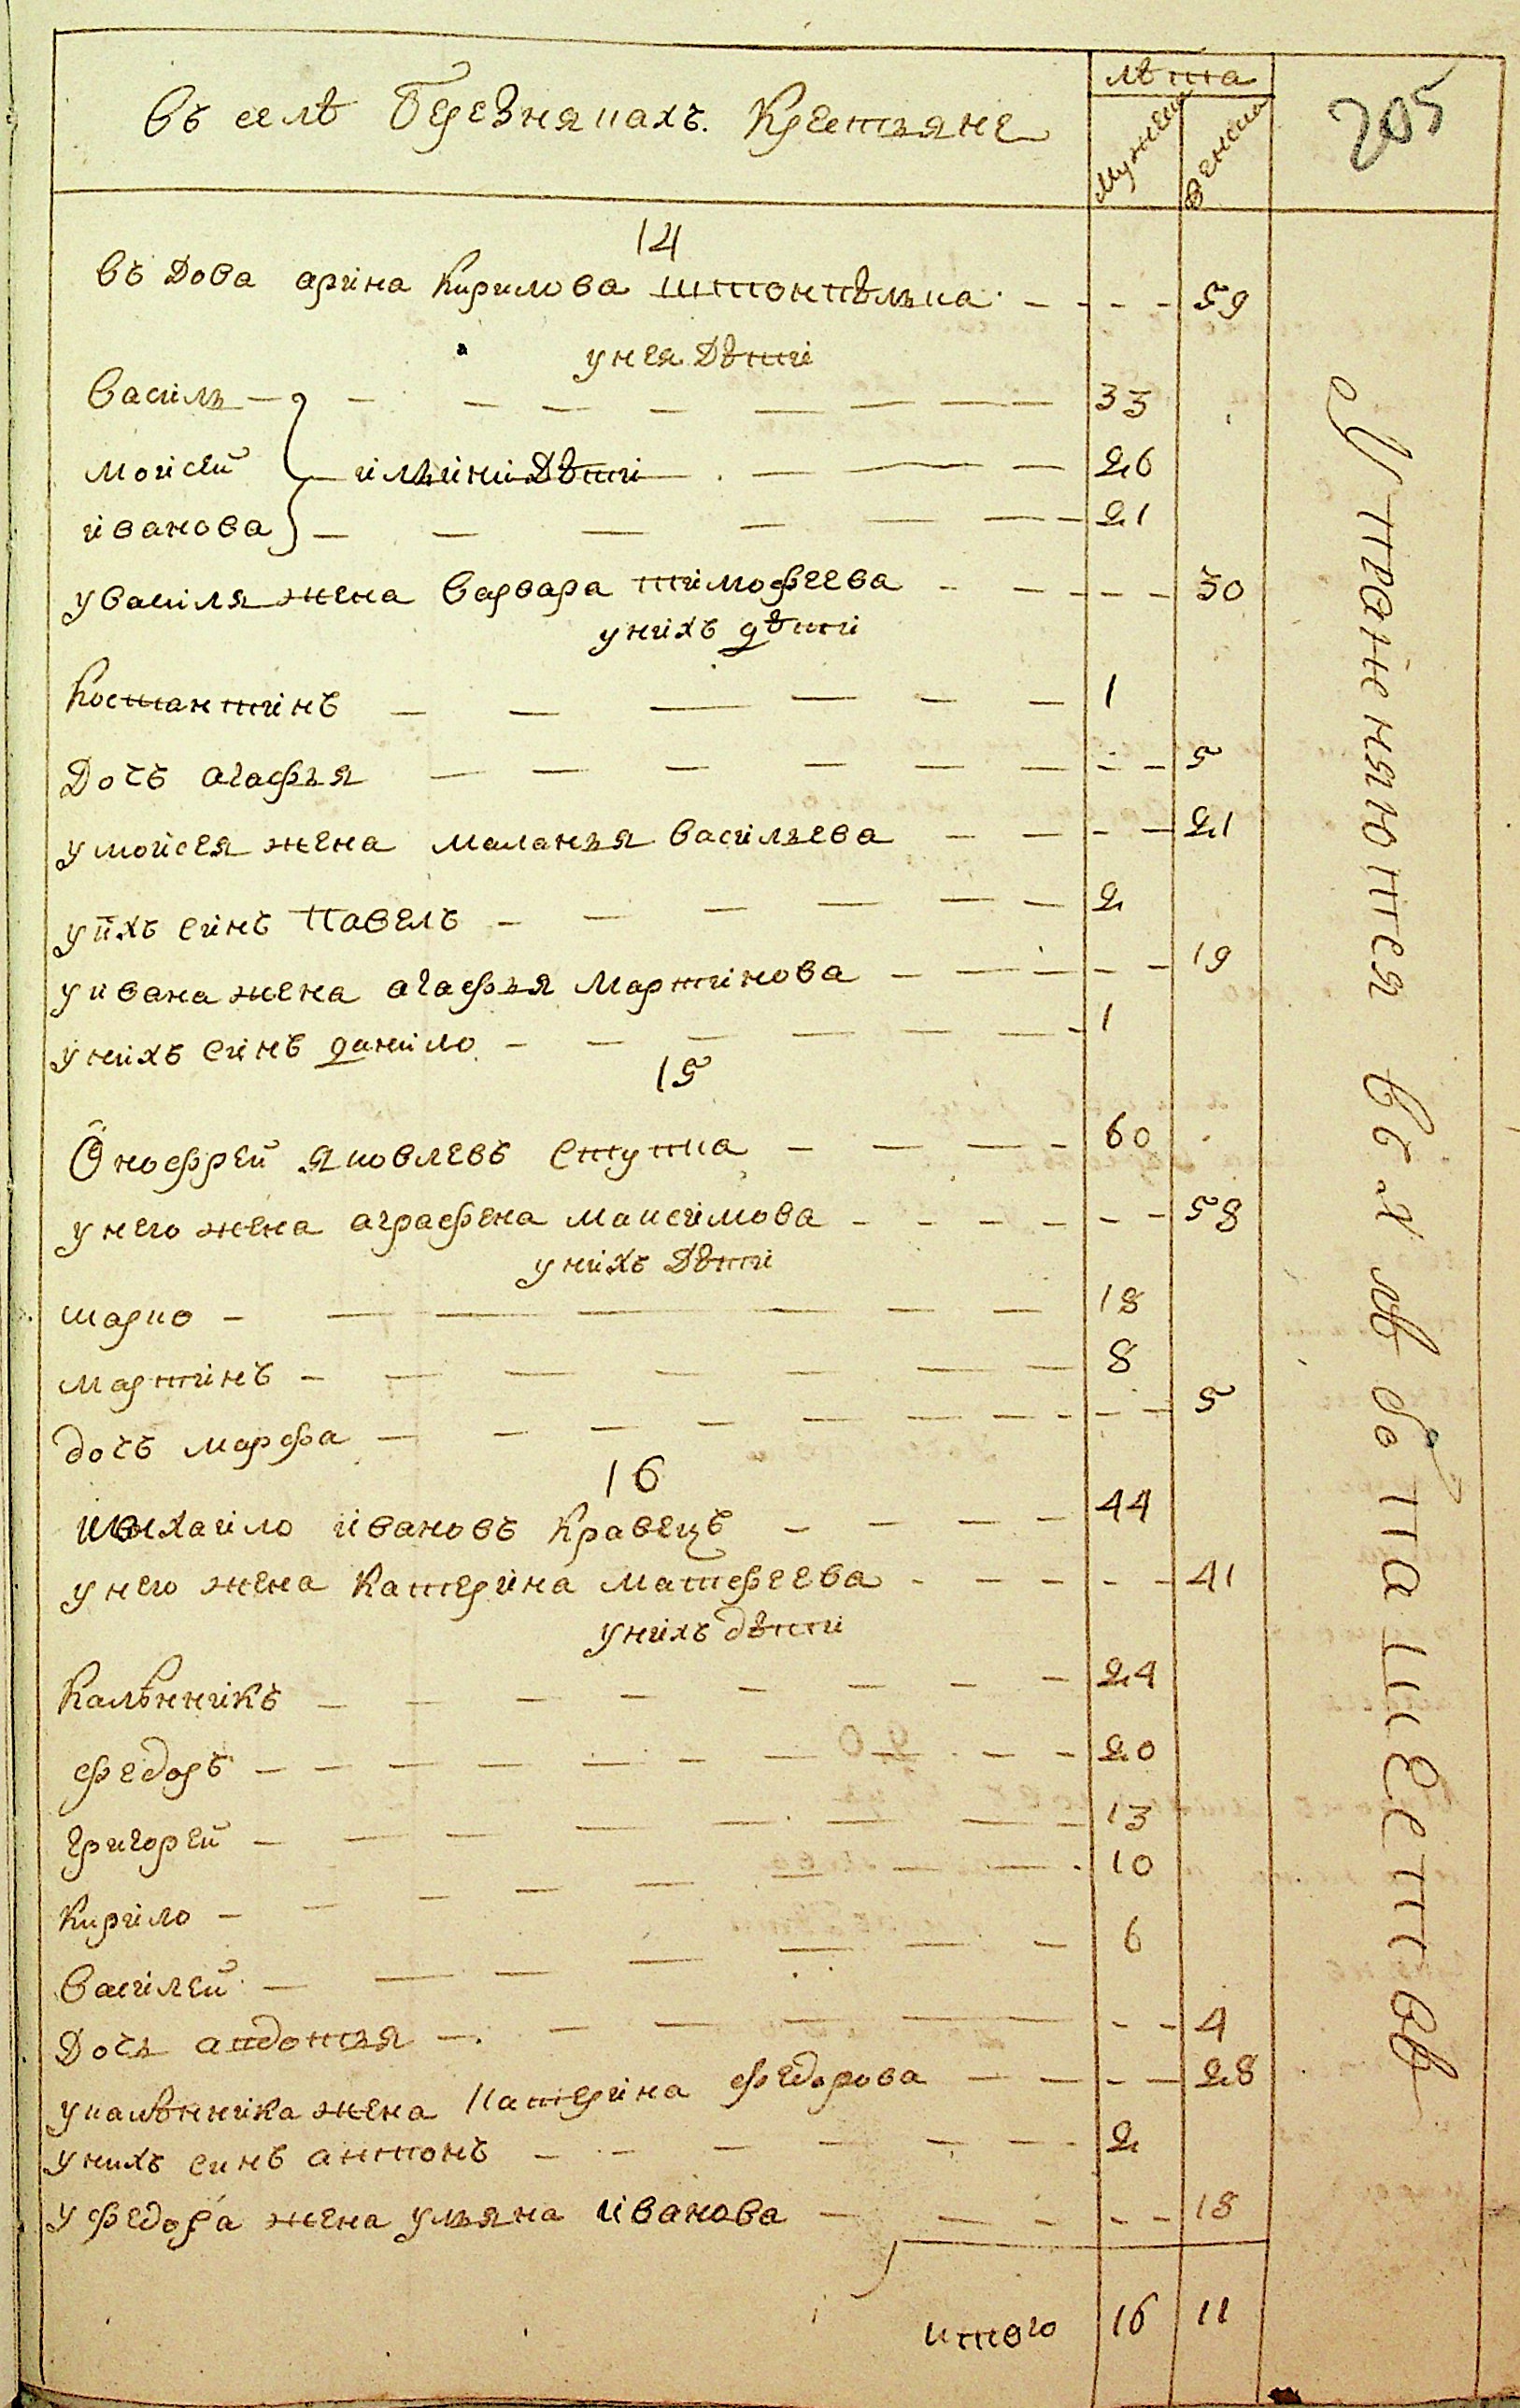 лѣта
205
Въ селѣ Березнякахъ. Крестьяне
мужеск
женск
14
въдова арина Кирилова штонпѣлька 59
унея дѣти
Василь 33
моисей илини дѣти 26
иванова 21
уВасиля жена Варвара тимофеева 30
унихъ дѣти
Костантинъ 1
Дочь агафья 5
умоисея жена маланья Васильева 21
уихъ синъ павелъ 2
уивана жена агафья Мартинова 19
унихъ синъ данило 1
15
Онофрей яковлевъ ступка 60
унего жена аграфена максимова 58
унихъ дѣти
марко 18
мартинъ 8
дочь марфа 5
16
михаило ивановъ Кравецъ 44
унего жена Катерина матфеева 41
унихъ дѣти
Калѣнникъ 24
федоръ 20
григорей 13
Кирило 10
василей 6
Дочь авдотья 4
укалѣнника жена катерина федорова 28
унихъ синъ антонъ 2
уфедора жена ульяна иванова 18
итого 16 11
Упражняются въ хлѣбопашествѣ